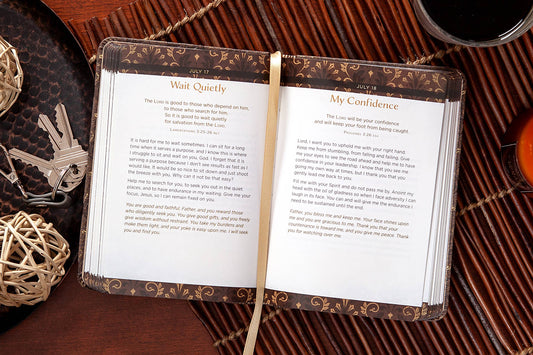 JULY 17
Wait Quietly
The LORD is good to those who depend on him,
to those who search for him.
So it is good to wait quietly
for salvation from the LORD.
LAMENTATIONS 3:25-26 NLT
It is hard for me to wait sometimes. I can sit for a long
time when it serves a purpose, and I know this is where
I struggle to sit and wait on you, God. I forget that it is
serving a purpose because I don't see results as fast as I
would like. It would be so nice to sit down and just shoot
the breeze with you. Why can it not be that easy?
Help me to search for you, to seek you out in the quiet
places, and to have endurance in my waiting. Give me your
focus, Jesus, so I can remain fixed on you.
You are good and faithful, Father, and you reward those
who diligently seek you. You give good gifts, and you freely
give wisdom without restraint. You take my burdens and
make them light, and your yoke is easy upon me. I will seek
you and find you.
JULY 18
My Confidence
The LORD will be your confidence
and will keep your foot from being caught.
PROVERBS 3:26
Lord, I want you to uphold me with your right hand.
Keep me from stumbling, from falling and failing. Give
me your eyes to see the road ahead and help me to have
complete confidence in your leadership. I know that you are
going my own way at times, but I thank you that you
gently lead me back to you.
Fill me with your Spirit and do not pass me by. Anoint my
head with the oil of gladness so when I face adversity I can
laugh in its face. You can and will give me the endurance I
need to be sustained until the end.
Father, you bless me and keep me. Your face shines upon
me and you are gracious to me. Thank you that your
countenance is toward me, and you give me peace. Thank
you for watching over me.